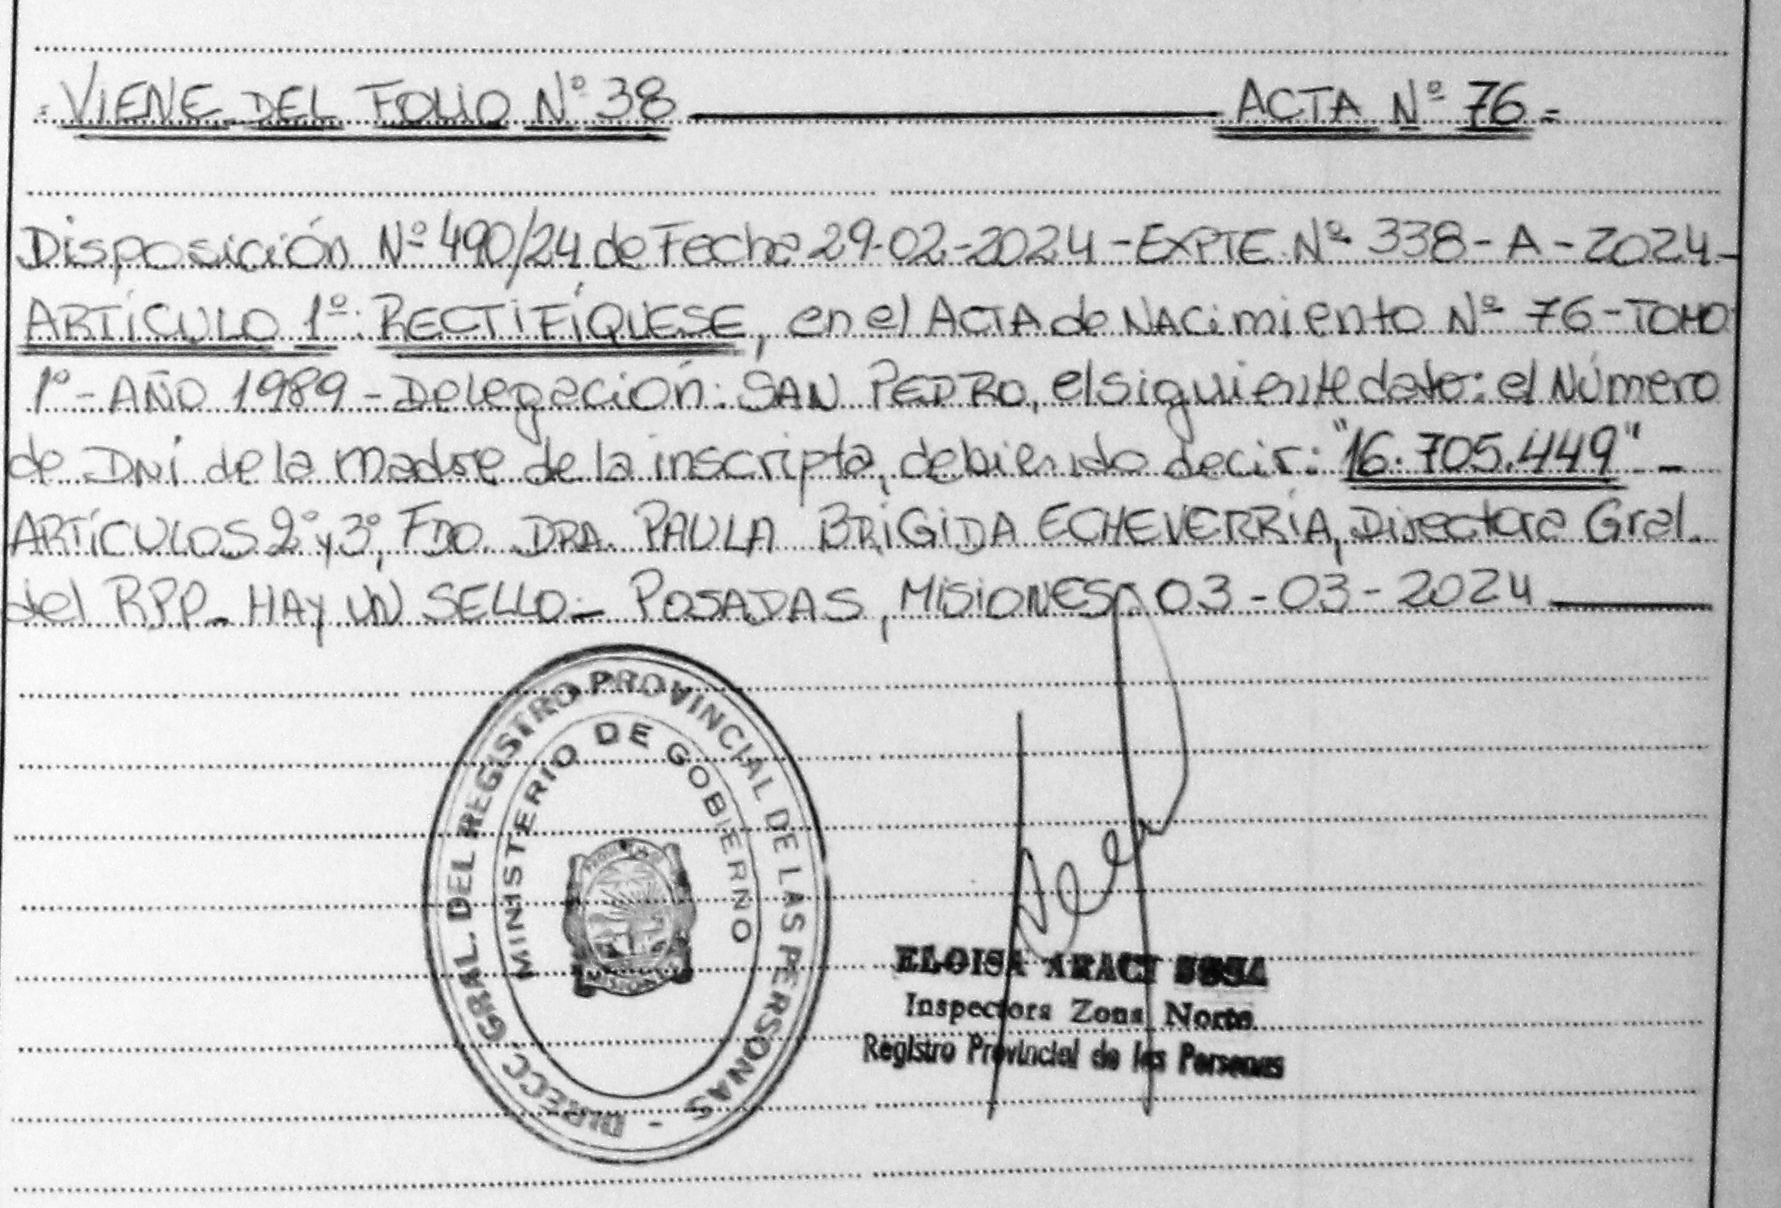 = VIENE DEL FOLIO Nº 38 ACTA Nº 76 =
Disposición Nº 490/24 de Fecha 29-02-2024 - EXPTE Nº 338 - A - 2024 -
ARTÍCULO 1º: RECTIFÍQUESE, en el ACTA de NACimiento Nº 76 - TOMO
1º - AÑO 1989 - Delegación: SAN PEDRO, el siguiente dato: el Número
de DNi de la madre de la inscripta, debiendo decir: "16.705.449" -
ARTÍCULOS 2º y 3º, FDO. DRA. PAULA BRÍGIDA ECHEVERRÍA, Directora Gral.
del RPP - HAY UN SELLO - POSADAS, MISIONES, 03 - 03 - 2024
DIRECC. GRAL. DEL REGISTRO PROVINCIAL DE LAS PERSONAS -
MINISTERIO DE GOBIERNO
MISIONES
ELOISA ARACI SOSA
Inspectora Zona Norte
Registro Provincial de las Personas